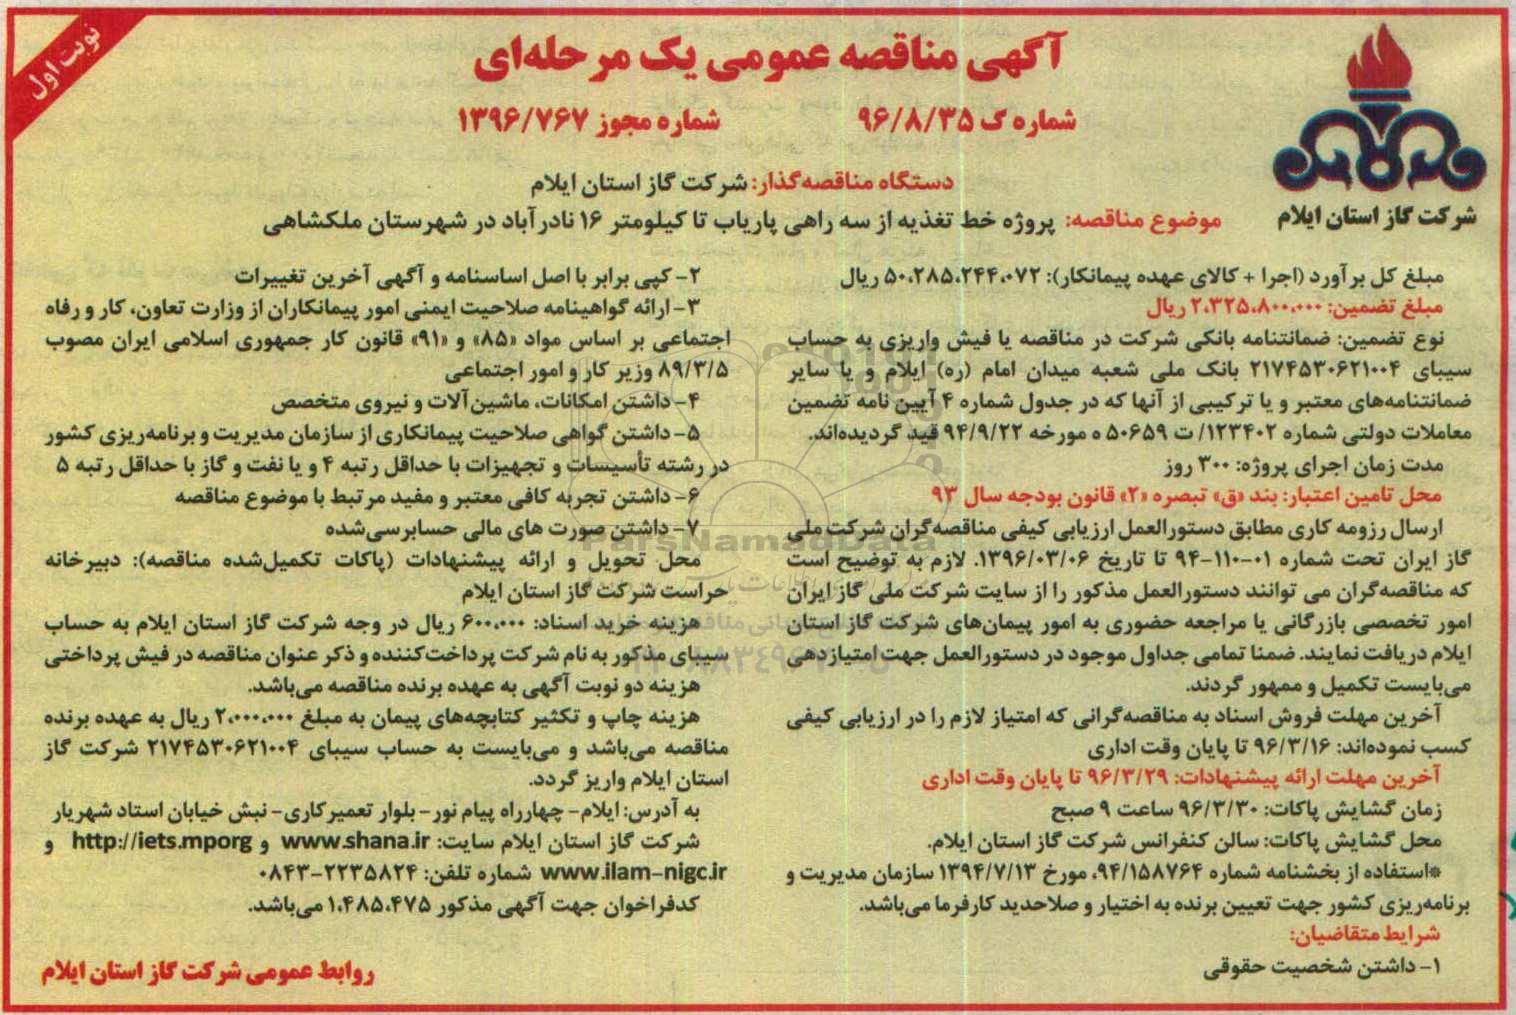 نوبت اول
آگهی مناقصه عمومی یک مرحله‌ای
شماره ک ۹۶/۸/۳۵
شماره مجوز ۱۳۹۶/۷۶۷
شرکت گاز استان ایلام
دستگاه مناقصه‌گذار: شرکت گاز استان ایلام
موضوع مناقصه: پروژه خط تغذیه از سه راهی پاریاب تا کیلومتر ۱۶ نادرآباد در شهرستان ملکشاهی
مبلغ کل برآورد (اجرا + کالای عهده پیمانکار): ۵۰،۲۸۵،۲۴۴،۰۷۲ ریال
مبلغ تضمین: ۲،۳۲۵،۸۰۰،۰۰۰ ریال
نوع تضمین: ضمانتنامه بانکی شرکت در مناقصه یا فیش واریزی به حساب
سیبای ۲۱۷۴۵۳۰۶۲۱۰۰۴ بانک ملی شعبه میدان امام (ره) ایلام و یا سایر
ضمانتنامه‌های معتبر و یا ترکیبی از آنها که در جدول شماره ۴ آیین نامه تضمین
معاملات دولتی شماره ۱۲۳۴۰۲/ ت ۵۰۶۵۹ ه مورخه ۹۴/۹/۲۲ قید گردیده‌اند.
مدت زمان اجرای پروژه: ۳۰۰ روز
محل تامین اعتبار: بند «ق» تبصره «۲» قانون بودجه سال ۹۳
ارسال رزومه کاری مطابق دستورالعمل ارزیابی کیفی مناقصه‌گران شرکت ملی
گاز ایران تحت شماره ۰۱-۱۱۰-۹۴ تا تاریخ ۱۳۹۶/۰۳/۰۶. لازم به توضیح است
که مناقصه‌گران می توانند دستورالعمل مذکور را از سایت شرکت ملی گاز ایران
امور تخصصی بازرگانی یا مراجعه حضوری به امور پیمان‌های شرکت گاز استان
ایلام دریافت نمایند. ضمنا تمامی جداول موجود در دستورالعمل جهت امتیازدهی
می‌بایست تکمیل و ممهور گردند.
آخرین مهلت فروش اسناد به مناقصه‌گرانی که امتیاز لازم را در ارزیابی کیفی
کسب نموده‌اند: ۹۶/۳/۱۶ تا پایان وقت اداری
آخرین مهلت ارائه پیشنهادات: ۹۶/۳/۲۹ تا پایان وقت اداری
زمان گشایش پاکات: ۹۶/۳/۳۰ ساعت ۹ صبح
محل گشایش پاکات: سالن کنفرانس شرکت گاز استان ایلام.
*استفاده از بخشنامه شماره ۹۴/۱۵۸۷۶۴، مورخ ۱۳۹۴/۷/۱۳ سازمان مدیریت و
برنامه‌ریزی کشور جهت تعیین برنده به اختیار و صلاحدید کارفرما می‌باشد.
شرایط متقاضیان:
۱- داشتن شخصیت حقوقی
۲- کپی برابر با اصل اساسنامه و آگهی آخرین تغییرات
۳- ارائه گواهینامه صلاحیت ایمنی امور پیمانکاران از وزارت تعاون، کار و رفاه
اجتماعی بر اساس مواد «۸۵» و «۹۱» قانون کار جمهوری اسلامی ایران مصوب
۸۹/۳/۵ وزیر کار و امور اجتماعی
۴- داشتن امکانات، ماشین‌آلات و نیروی متخصص
۵- داشتن گواهی صلاحیت پیمانکاری از سازمان مدیریت و برنامه‌ریزی کشور
در رشته تأسیسات و تجهیزات با حداقل رتبه ۴ و یا نفت و گاز با حداقل رتبه ۵
۶- داشتن تجربه کافی معتبر و مفید مرتبط با موضوع مناقصه
۷- داشتن صورت های مالی حسابرسی‌شده
محل تحویل و ارائه پیشنهادات (پاکات تکمیل‌شده مناقصه): دبیرخانه
حراست شرکت گاز استان ایلام
هزینه خرید اسناد: ۶۰۰،۰۰۰ ریال در وجه شرکت گاز استان ایلام به حساب
سیبای مذکور به نام شرکت پرداخت‌کننده و ذکر عنوان مناقصه در فیش پرداختی
هزینه دو نوبت آگهی به عهده برنده مناقصه می‌باشد.
هزینه چاپ و تکثیر کتابچه‌های پیمان به مبلغ ۲،۰۰۰،۰۰۰ ریال به عهده برنده
مناقصه می‌باشد و می‌بایست به حساب سیبای ۲۱۷۴۵۳۰۶۲۱۰۰۴ شرکت گاز
استان ایلام واریز گردد.
به آدرس: ایلام- چهارراه پیام نور- بلوار تعمیرکاری- نبش خیابان استاد شهریار
شرکت گاز استان ایلام سایت: www.shana.ir و http://iets.mporg و
www.ilam-nigc.ir شماره تلفن: ۲۲۳۵۸۲۴-۰۸۴۳
کدفراخوان جهت آگهی مذکور ۱،۴۸۵،۴۷۵ می‌باشد.
روابط عمومی شرکت گاز استان ایلام
ParsNamadData